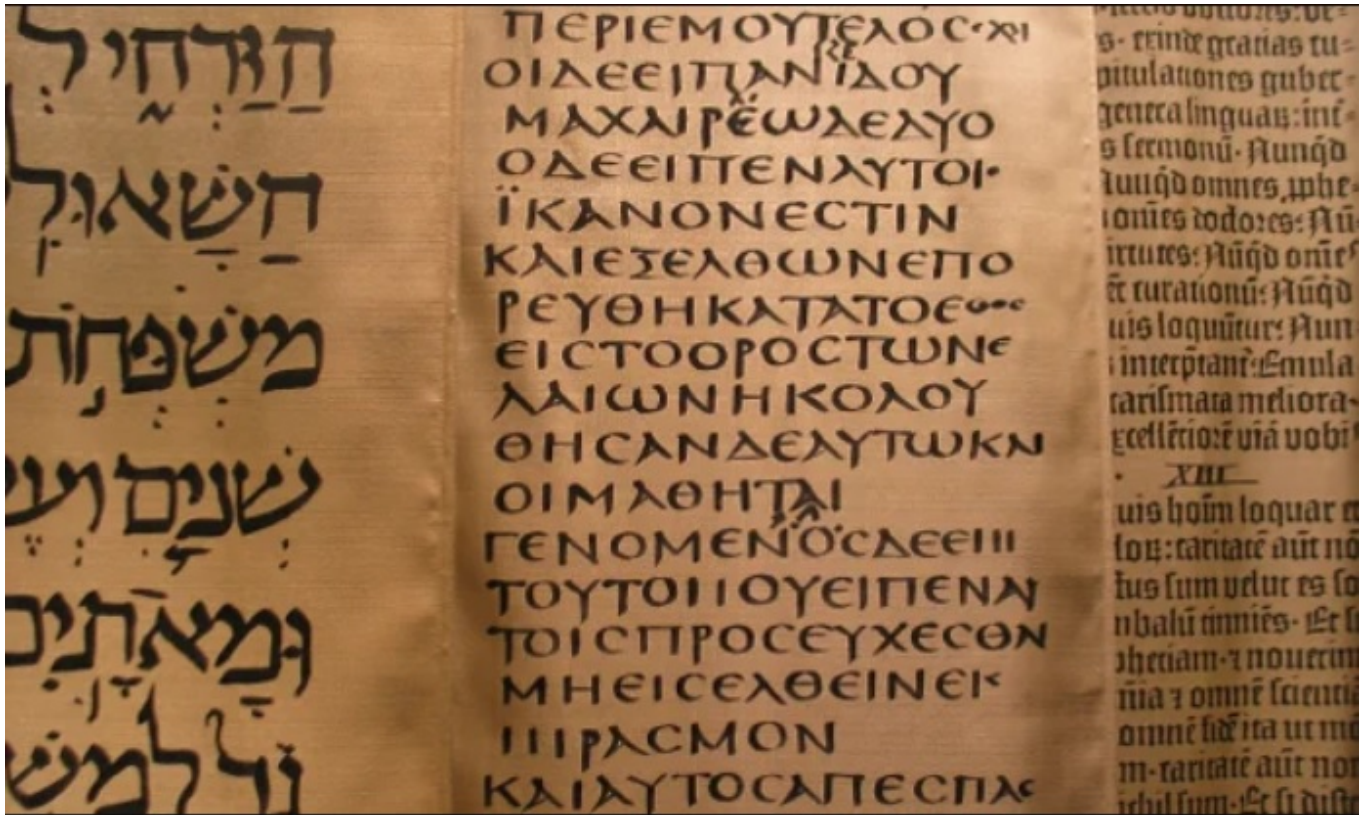 הַזַּרְחִ֑י לְ
הַשָּׁאוּל
מִשְׁפְּחֹת
שְׁנַיִם וְעֶ
וּמָאתָיִם
גד למש
ΠΕΡΙΕΜΟΥΤΕΛΟϹ·ΧΙ
ΟΙΔΕΕΙΠΑΝΪΔΟΥ
ΜΑΧΑΙΡΕΩΔΕΔΥΟ
ΟΔΕΕΙΠΕΝΑΥΤΟΙ·
ΪΚΑΝΟΝΕϹΤΙΝ
ΚΑΙΕΞΕΛΘΩΝΕΠΟ
ΡΕΥΘΗΚΑΤΑΤΟΕθοϲ
ΕΙϹΤΟΟΡΟϹΤΩΝΕ
ΛΑΙΩΝΗΚΟΛΟΥ
ΘΗϹΑΝΔΕΑΥΤΩΚΑΙ
ΟΙΜΑΘΗΤΑΙ
ΓΕΝΟΜΕΝΟϹΔΕΕΠΙ
ΤΟΥΤΟΠΟΥΕΙΠΕΝΑΥ
ΤΟΙϹΠΡΟϹΕΥΧΕϹΘΗ
ΜΗΕΙϹΕΛΘΕΙΝΕΙϲ
ΠΙΡΑϹΜΟΝ
ΚΑΙΑΥΤΟϹΑΠΕϹΠΑϲ
s· exinde gratias cu-
opitulationes guber-
genera linguaꝝ: int-
s sermonū· Nunqͥd
Nunqͥd omnes ꝓphe-
omēs doctores: Nū
irtutes: Nūqͥd omēs
ēt curationū: Nūqͥd
uis loquūtur: Nun
interp̄tant᷑: Emula
carismata meliora·
xcellētiorē viā vobis
XIII
uis hoīm loquar et
loꝝ: caritatē aūt nō
tus sum velut es so
mbalū tinniēs· Et si
phetiam· ⁊ nouerim
nīa ⁊ omnē scientiā
omnē fidē ita ut mō
m· caritatē aūt non
ichil sum· Et si distr